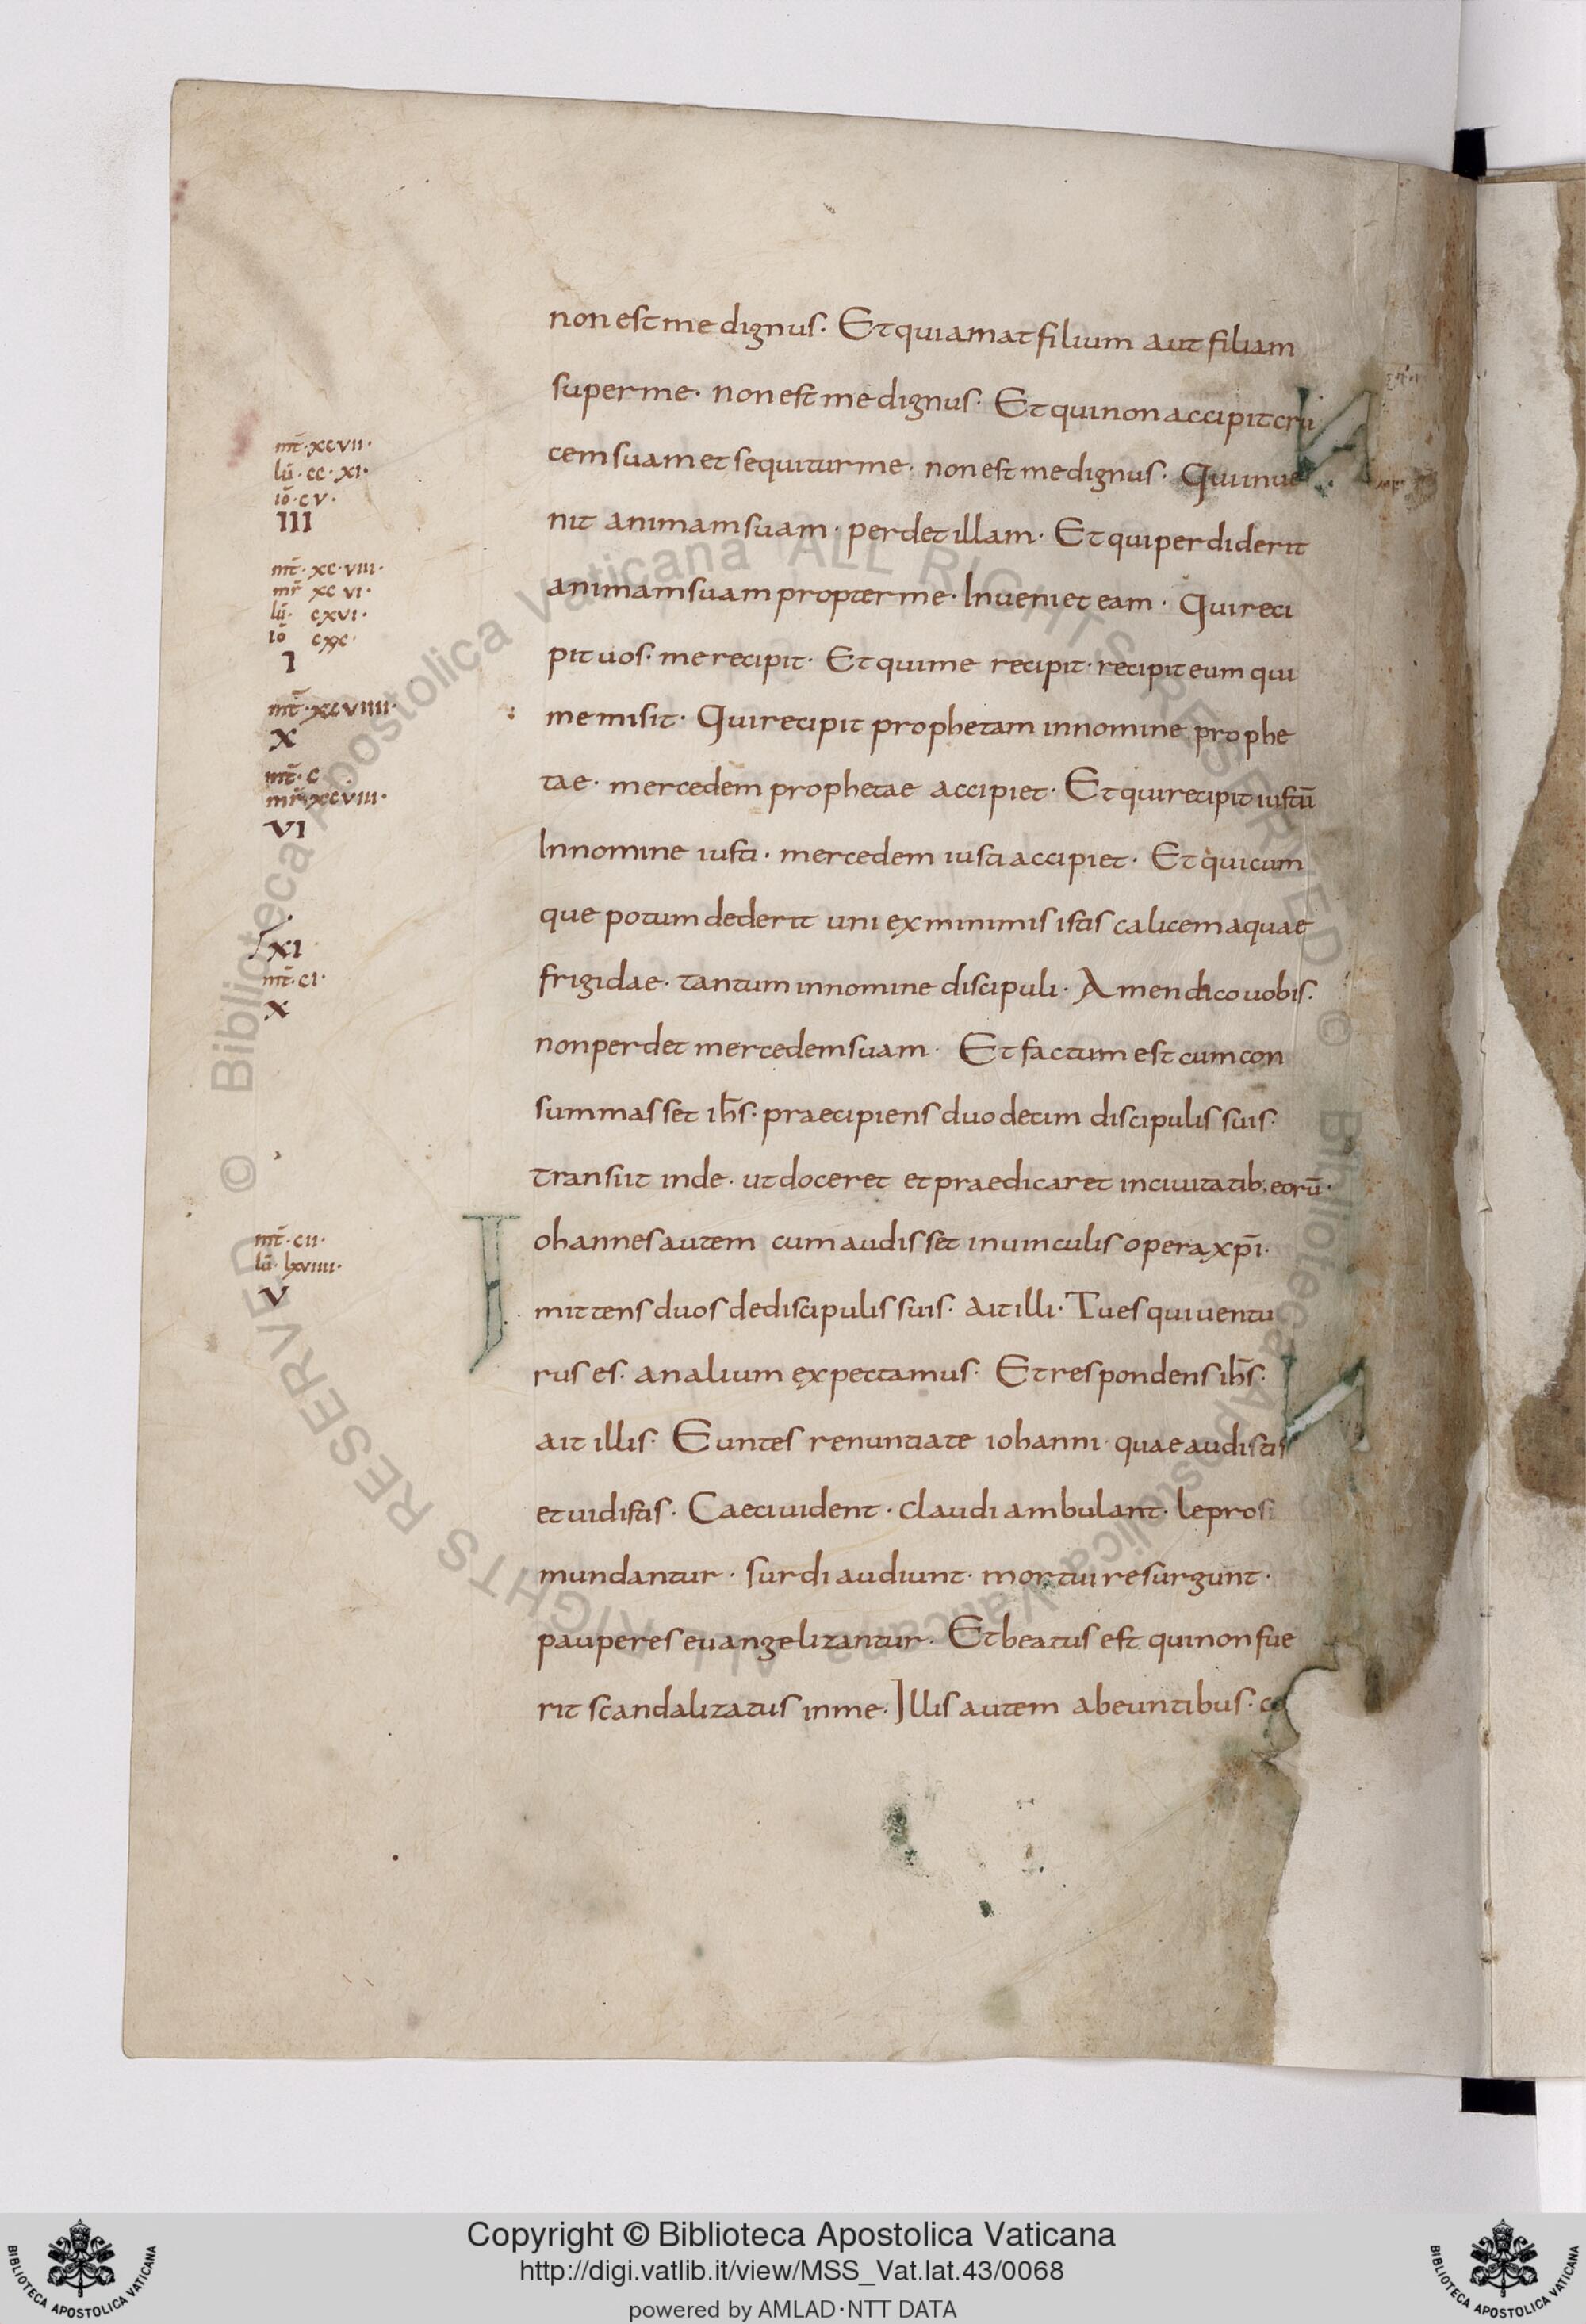 non est me dignus. Et qui amat filium aut filiam
super me. non est me dignus. Et qui non accipit cru
cem suam et sequitur me. non est me dignus. Qui inue
nit animam suam. perdet illam. Et qui perdiderit
animam suam propter me. Inueniet eam. Qui reci
pit uos. me recipit. Et qui me recipit. recipit eum qui
me misit. Qui recipit prophetam in nomine prophe
tae. mercedem prophetae accipiet. Et qui recipit iustū
In nomine iusti. mercedem iusti accipiet. Et quicum
que potum dederit uni ex minimis istis calicem aquae
frigidae. tantum in nomine discipuli. Amen dico uobis.
non perdet mercedem suam. Et factum est cum con
summasset ih̄s. praecipiens duodecim discipulis suis.
transiit inde. ut doceret et praedicaret in ciuitatib; eorū.
Iohannes autem cum audisset in uinculis opera xp̄i.
mittens duos de discipulis suis. ait illi. Tu es qui uentu
rus es. an alium expectamus. Et respondens ih̄s.
ait illis. Euntes renuntiate iohanni. quae audistis
et uidistis. Caeci uident. claudi ambulant. leprosi
mundantur. surdi audiunt. mortui resurgunt.
pauperes euangelizantur. Et beatus est qui non fue
rit scandalizatus in me. Illis autem abeuntibus. c
mt̄. xcvii.
lū. cc. xi.
iō. cv.
III
mt̄. xc. viii.
mr̄ xc vi.
lū. cxvi.
iō cxx.
I
mt̄. xcviiii.
X
mt̄. c
mr̄. xcviii.
VI
XI
mt̄. ci.
X
mt̄. cii.
lū. lxviiii.
V
© Biblioteca Apostolica Vaticana ALL RIGHTS RESERVED © Biblioteca Apostolica Vaticana ALL RIGHTS RESERVED
Copyright © Biblioteca Apostolica Vaticana
http://digi.vatlib.it/view/MSS_Vat.lat.43/0068
powered by AMLAD·NTT DATA
BIBLIOTECA APOSTOLICA VATICANA
BIBLIOTECA APOSTOLICA VATICANA